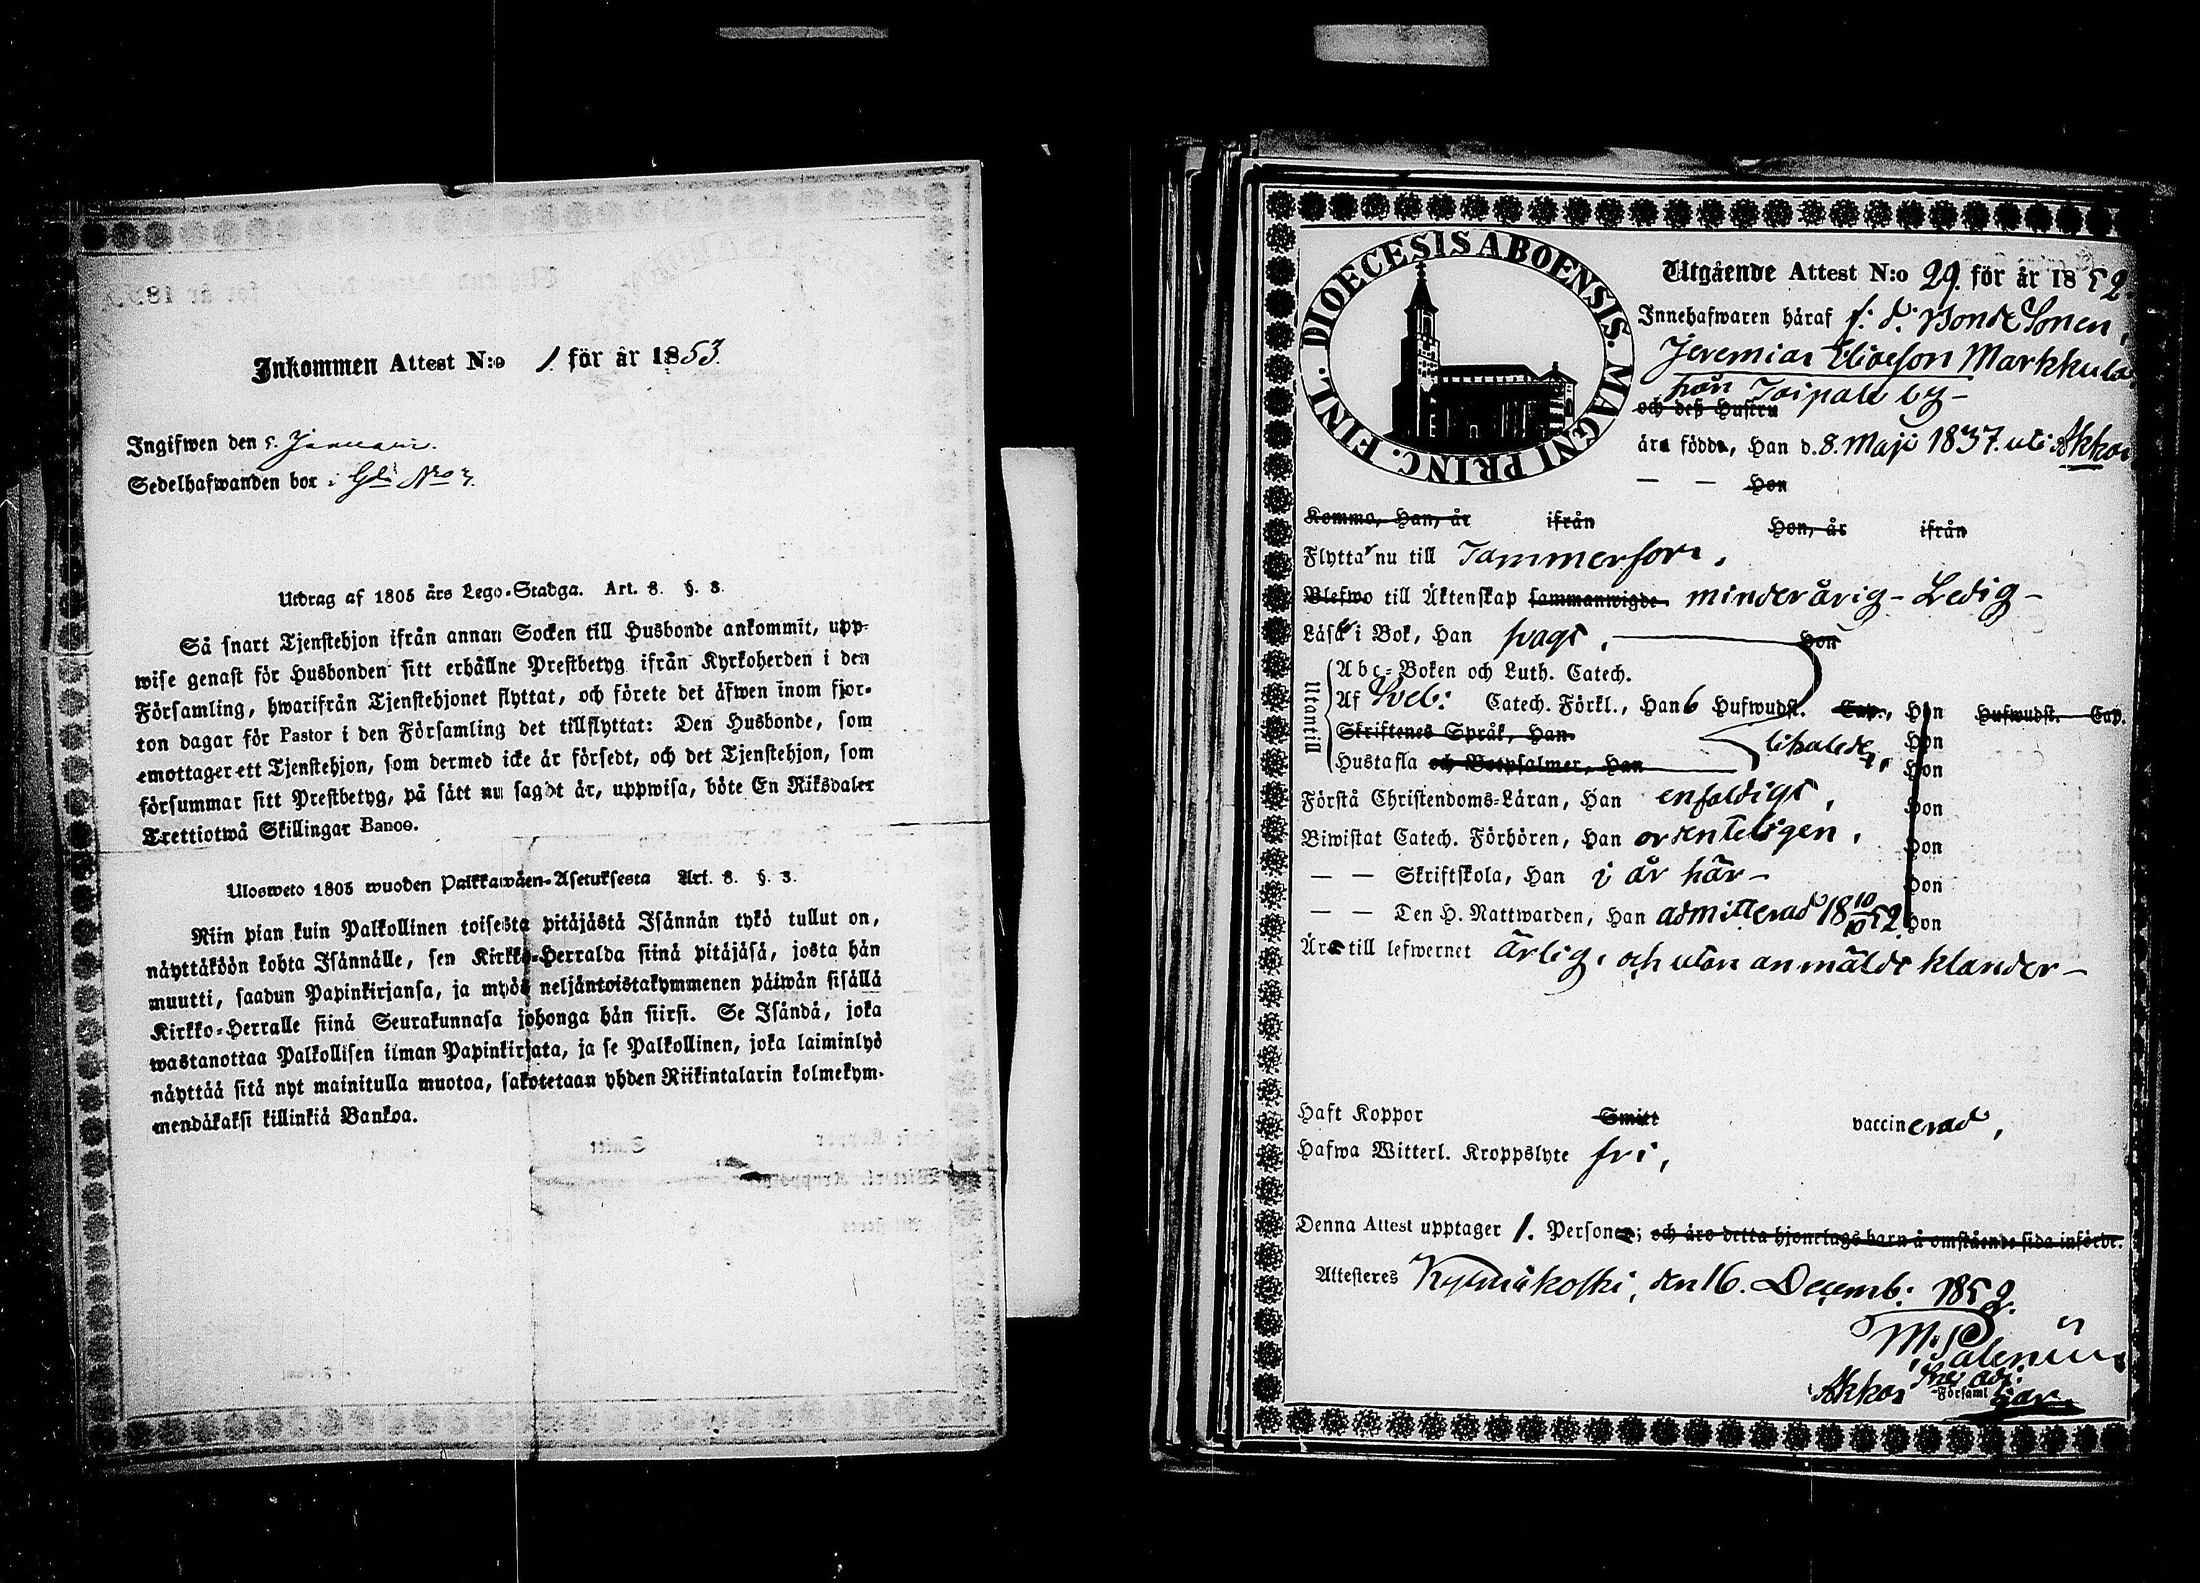 Inkommen Attest N:o 1. för år 1853.
Ingifwen den 5. Januari.
Sedelhafwanden bor i Gd: No 3.
Utdrag af 1805 års Lego-Stadga. Art. 8. §. 3.
Så snart Tjenstehjon ifrån annan Socken till Husbonde ankommit, upp-
wise genast för Husbonden sitt erhållne Prestbetyg ifrån Kyrkoherden i den
Församling, hwarifrån Tjenstehjonet flyttat, och förete det äfwen inom fjor-
ton dagar för Pastor i den Församling det tillflyttat: Den Husbonde, som
emottager ett Tjenstehjon, som dermed icke är försedt, och det Tjenstehjon, som
försummar sitt Prestbetyg, på sätt nu sagdt är, uppwisa, böte En Riksdaler
Trettiotwå Skillingar Banco.
Ulosweto 1805 wuoden Palkkawäen-Asetuksesta Art. 8. §. 3.
Niin pian kuin Palkollinen toisesta pitäjästä Isännän tykö tullut on,
näyttäköön kohta Isännälle, sen Kirkko-Herralda siinä pitäjäsä, josta hän
muutti, saadun Papinkirjansa, ja myös neljäntoistakymmenen päiwän sisällä
Kirkko-Herralle siinä Seurakunnasa johonga hän siirsi. Se Isändä, joka
wastanottaa Palkollisen ilman Papinkirjata, ja se Palkollinen, joka laiminlyö
näyttää sitä nyt mainitulla muotoa, sakotetaan yhden Riikintalarin kolmekym-
mendäkaksi killinkiä Bankoa.
DIOECESIS ABOENSIS. MAGNI PRINC. FINL.
Utgående Attest N:o 29. för år 1852.
Innehafwaren häraf f. d. Bonde Sonen,
Jeremias Eliaeson Markkula
från Toipale by-
och deß Hustru
äro födde, Han d. 8. Maji 1837. uti Akkas
— — Hon
Kommo, Han, år ifrån Hon, år ifrån
Flyttar nu till Tammerfors.
Blefwo till Äktenskap sammanwigde. minderårig - Ledig -
Läsa i Bok, Han svagt. Hon
Utantill
Abc-Boken och Luth. Catech.
Af Sveb: Catech. Förkl., Han 6 Hufwudst. Cap., Hon Hufwudst. Cap.
Skriftenes Språk, Han Hon
Hustafla och Botpsalmer, Han Hon
Förstå Christendoms-Läran, Han enfaldigt, Hon
Biwistat Catech. Förhören, Han ordenteligen, Hon
— — Skriftskola, Han i år här - Hon
— — Den H. Nattwarden, Han admitterad 18 10/10 52. Hon
Äro till lefwernet ärlig, och utan anmäldt klander -
Haft Koppor Smitt vaccinerad,
Hafwa Witterl. Kroppslyte fri,
Denna Attest upptager 1. Personer; och äro detta hjonelags barn å omstående sida införde.
Attesteres Kylmäkoski, den 16. Decemb: 1852.
M. Salenius
Akkas Församl